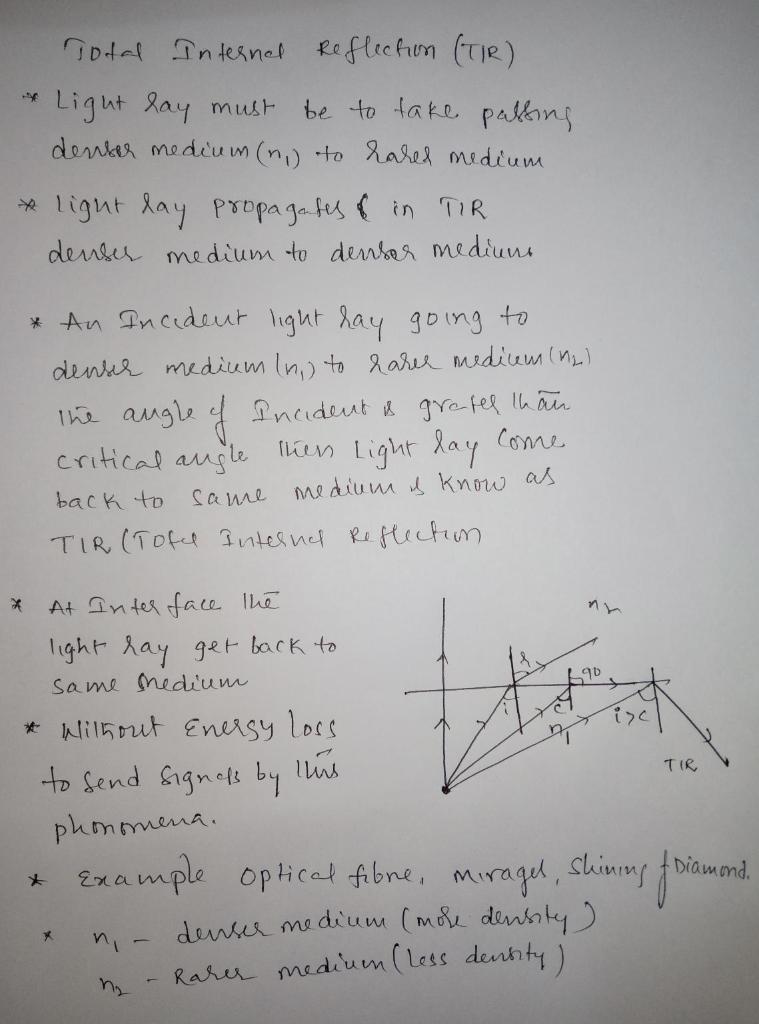 Total Internel Reflection (TIR)
* Light ray must be to take passing
denser medium (n₁) to rarer medium
* light ray propagates in TIR
denser medium to denser medium
* An Incident light ray going to
denser medium (n₁) to rarer medium (n₂)
the angle of Incident is grater than
critical angle then Light ray come
back to same medium is know as
TIR (Total Internel Reflection
* At Interface the
light ray get back to
same medium
* Without Energy loss
to send signals by this
phonomena.
n₂
r
90
i
c
i>c
n₁
TIR
* Example optical fibre, mirages, shining of Diamond.
* n₁ - denser medium (more density)
n₂ - Rarer medium (less density)